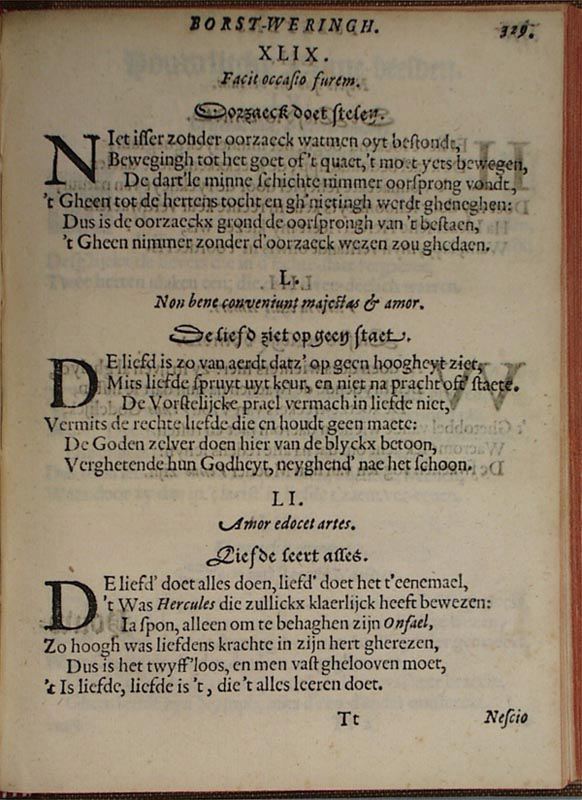 BORST-WERINGH. 329.
XLIX.
Facit occasio furem.
Oorzaeck doet stelen.
NIet isser zonder oorzaeck watmen oyt bestondt,
Bewegingh tot het goet of 't quaet, 't moet yets bewegen,
De dart'le minne schichte nimmer oorsprong vondt,
't Gheen tot de hertens tocht en gh'nietingh werdt gheneghen:
Dus is de oorzaeckx grond de oorsprongh van 't bestaen,
't Gheen nimmer zonder d'oorzaeck wezen zou ghedaen.
L.
Non bene conveniunt majestas & amor.
De liefd ziet op geen staet.
DE liefd is zo van aerdt datz' op geen hoogheyt ziet,
Mits liefde spruyt uyt keur, en niet na pracht oft staete.
De Vorstelijcke prael vermach in liefde niet,
Vermits de rechte liefde die en houdt geen maete:
De Goden zelver doen hier van de blyckx betoon,
Verghetende hun Godheyt, neyghend' nae het schoon.
LI.
Amor edocet artes.
Liefde leert alles.
DE liefd' doet alles doen, liefd' doet het t'eenemael,
't Was Hercules die zullickx klaerlijck heeft bewezen:
Ia spon, alleen om te behaghen zijn Onfael,
Zo hoogh was liefdens krachte in zijn hert gherezen,
Dus is het twyff'loos, en men vast ghelooven moet,
't Is liefde, liefde is 't, die 't alles leeren doet.
Tt Nescio